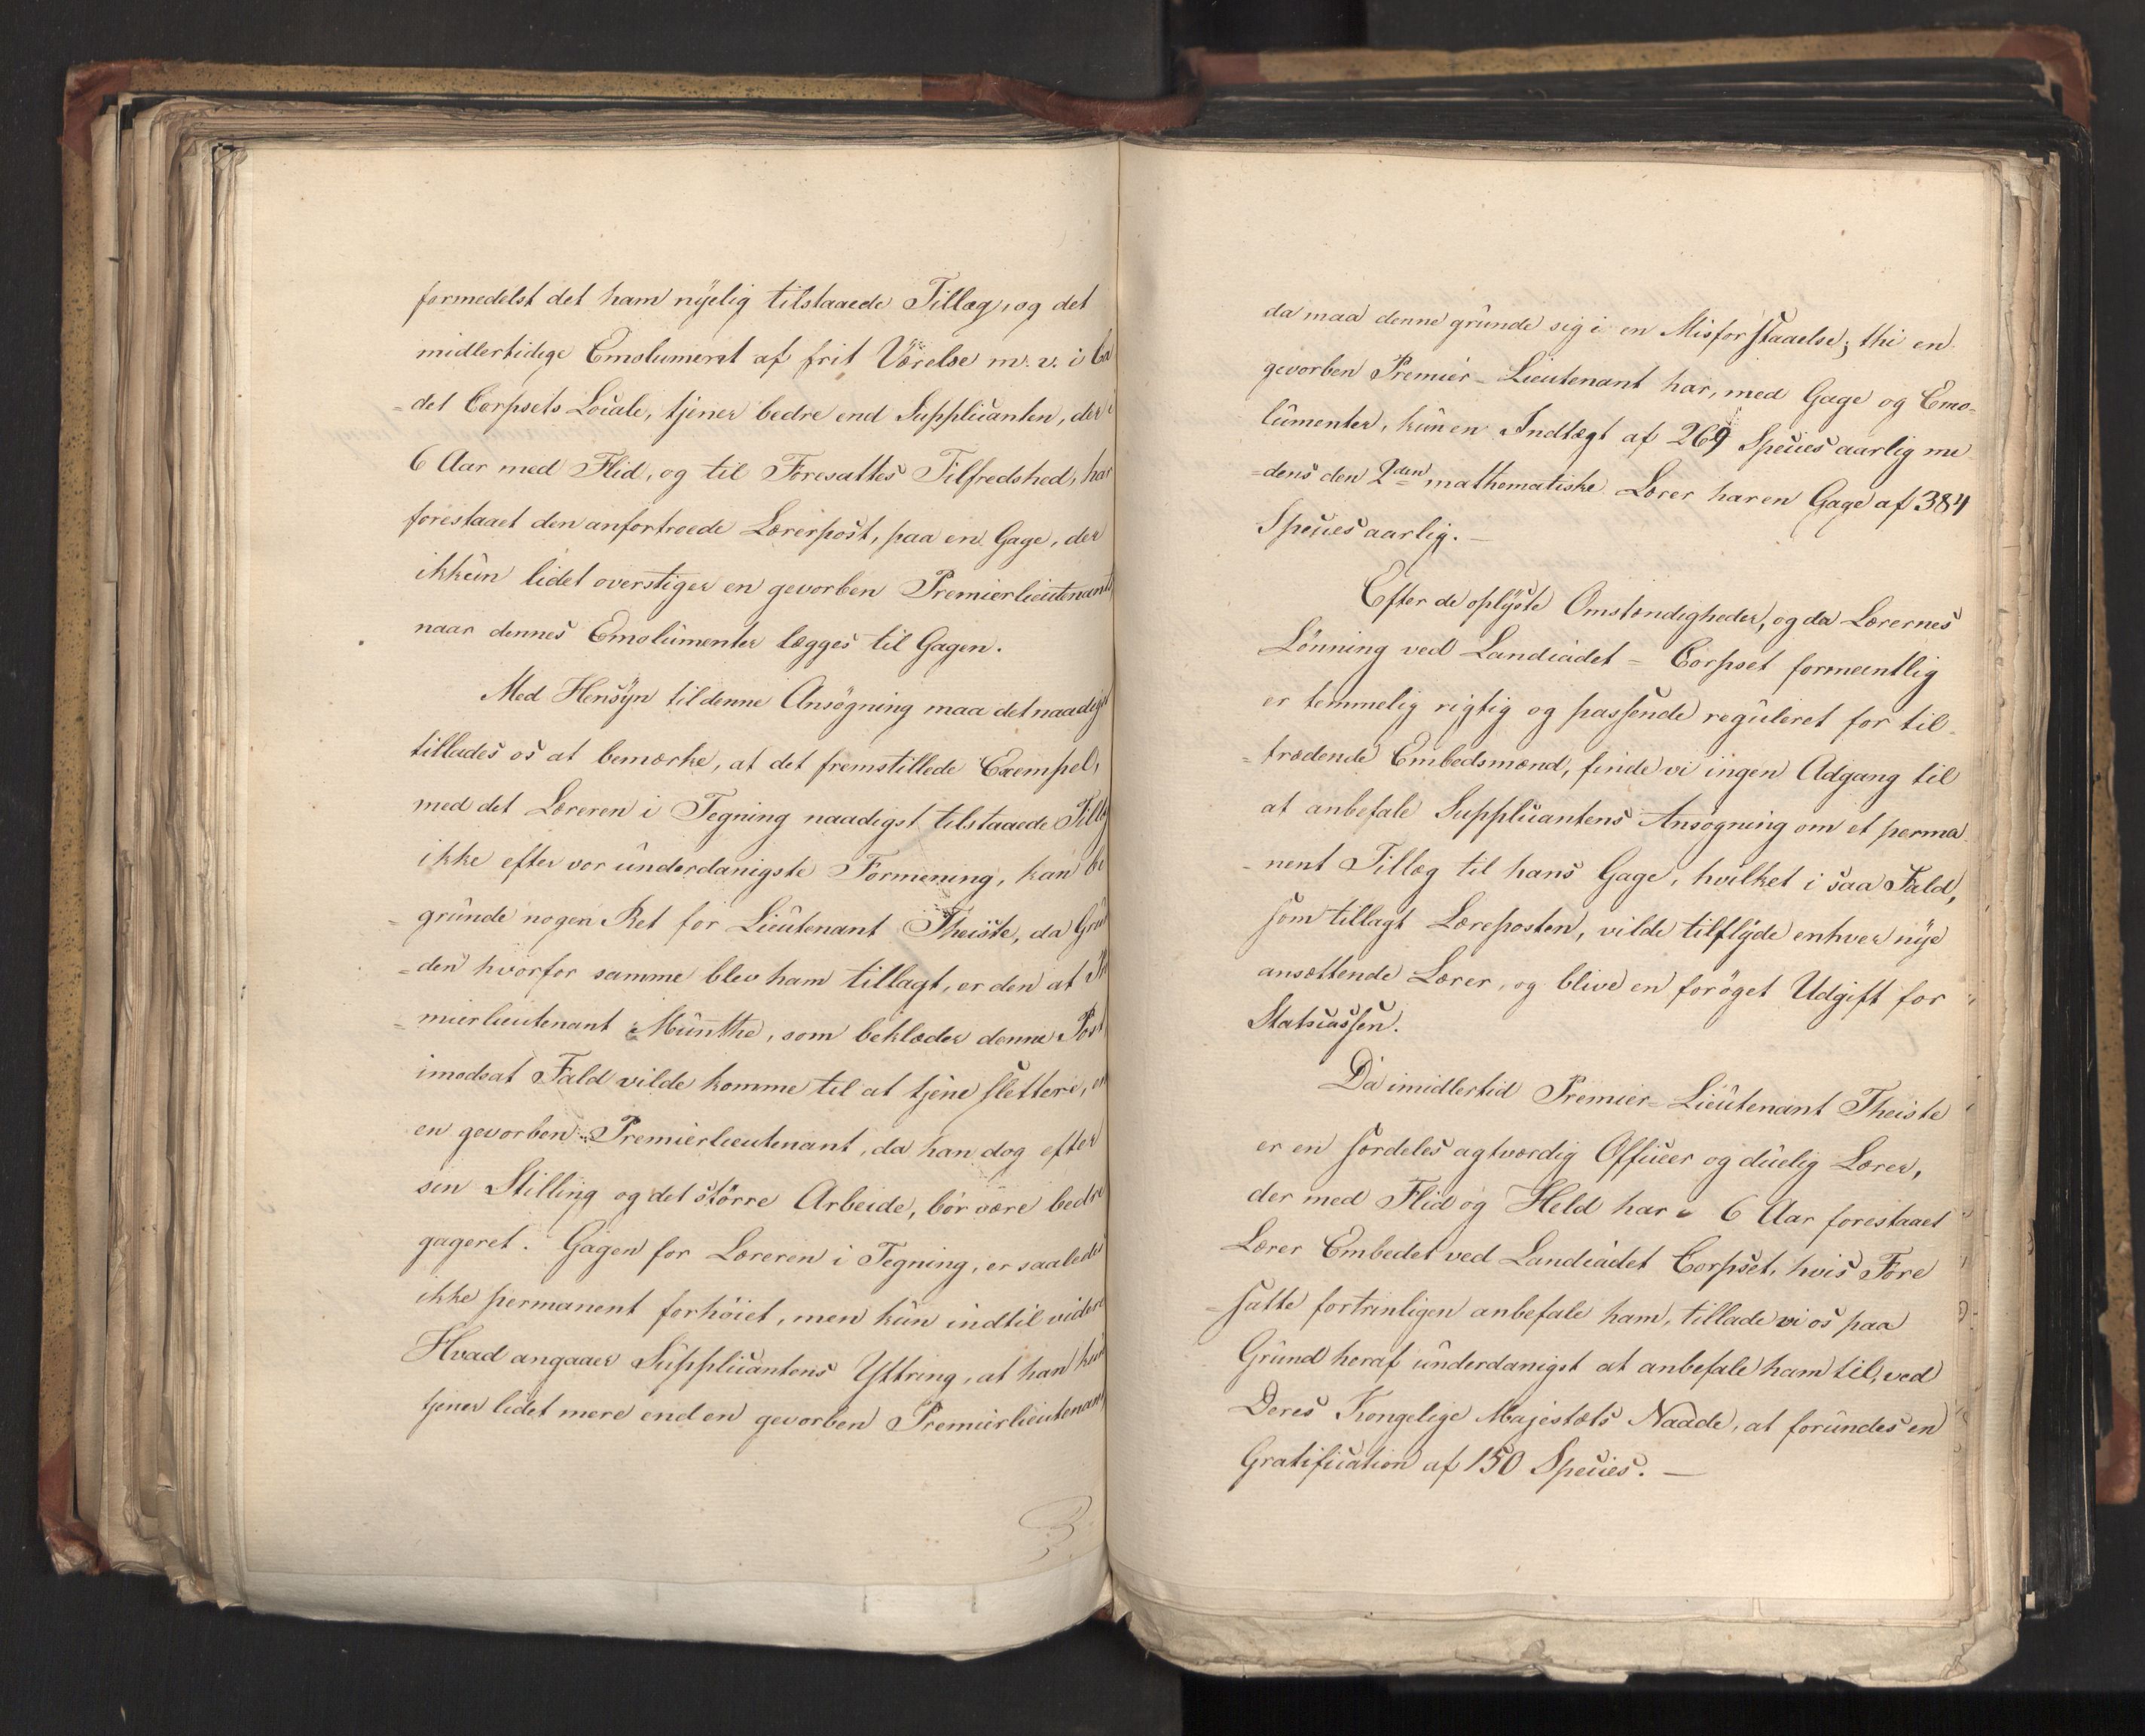 formedelst det ham nyelig tilstaaede Tillæg, og det
midlertidige Emolument af frit Værelse m. v. i Ca
=det Corpsets Locale, tjener bedre end Supplicanten, der i
6 Aar med Flid, og til Foresattes Tilfredshed, har
forestaaet den anfortroede Lærerpost, paa en Gage, der
ikkun lidet overstiger en gevorben Premierlieutenants,
naar dennes Emolumenter lægges til Gagen.
Med Hensyn til denne Ansøgning maa det naadigst
tillades os at bemærke, at det fremstillede Exempel,
med det Læreren i Tegning naadigst tilstaaede Tillæg
ikke efter vor underdanigste Formening, kan be
=grunde nogen Ret for Lieutenant Theiste, da Grun
=den hvorfor samme blev ham tillagt, er den at Pre
=mierlieutenant Münthe, som beklæder denne Post
imodsat Fald vilde komme til at tjene slettere, en
en gevorben Premierlieutenant, da han dog efter
sin Stilling og det større Arbeide, bör være bedre
gageret. Gagen for Læreren i Tegning, er saaledes
ikke permanent forhöiet, men kun indtil videre
Hvad angaaer Supplicantens Yttring, at han kun
tjener lidet mere end en gevorben Premierlieutenant,
da maa denne grunde sig i en Misforstaaelse; thi en
gevorben Premier-Lieutenant har, med Gage og Emo-
lumenter, kun en Indtægt af 269 Species aarlig me
=dens den 2den mathematiske Lærer har en Gage af 384
Species aarlig. —
Efter de oplyste Omstændigheder, og da Lærernes
Lønning ved Landcadet=Corpset formeentlig
er temmelig rigtig og passende reguleret for til-
=trædende Embedsmænd, finde vi ingen Adgang til
at anbefale Supplicantens Ansøgning om et perma
-nent Tillæg til hans Gage, hvilket i saa Fald,
som tillagt Læreposten, vilde tilflyde enhver nye
ansættende Lærer, og blive en forøget Udgift for
Statscassen.
Da imidlertid Premier-Lieutenant Theiste
er en særdeles agtværdig Officer og duelig Lærer,
der med Flid og Held har i 6 Aar forestaaet
Lærer Embedet ved Landcadet Corpset, hvis Fore
=satte fortrinligen anbefale ham, tillade vi os paa
Grund heraf underdanigst at anbefale ham til, ved
Deres Kongelige Majestæts Naade, at forundes en
Gratification af 150 Species. —